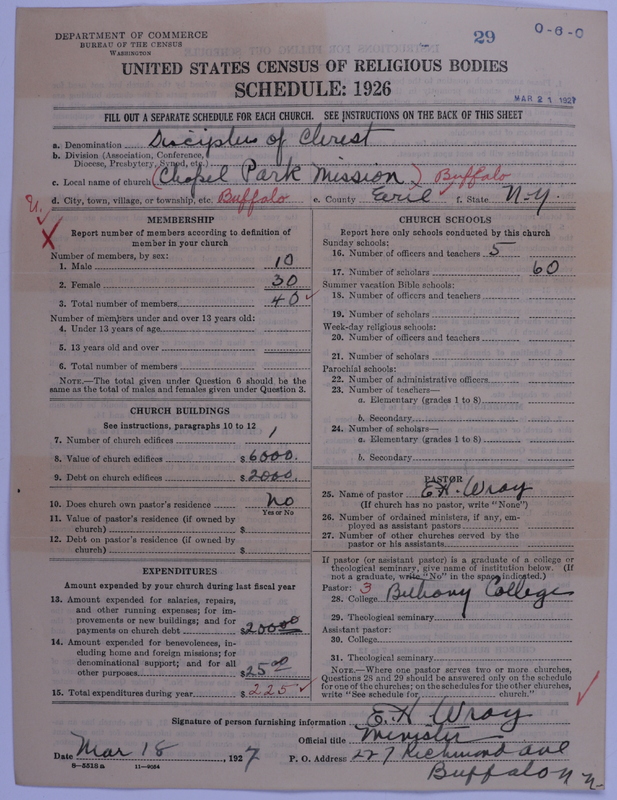 DEPARTMENT OF COMMERCE
BUREAU OF THE CENSUS
WASHINGTON
29
0-6-0
UNITED STATES CENSUS OF RELIGIOUS BODIES
SCHEDULE: 1926
MAR 21 1927
FILL OUT A SEPARATE SCHEDULE FOR EACH CHURCH. SEE INSTRUCTIONS ON THE BACK OF THIS SHEET
a. Denomination Disciples of Christ
b. Division (Association, Conference, Diocese, Presbytery, Synod, etc.)
c. Local name of church (Chapel Park Mission) Buffalo
d. City, town, village, or township, etc. Buffalo e. County Erie f. State N.Y.
U.
X
MEMBERSHIP
Report number of members according to definition of member in your church
Number of members, by sex:
1. Male 10
2. Female 30
3. Total number of members 40
Number of members under and over 13 years old:
4. Under 13 years of age
5. 13 years old and over
6. Total number of members
NOTE.—The total given under Question 6 should be the same as the total of males and females given under Question 3.
CHURCH BUILDINGS
See instructions, paragraphs 10 to 12
7. Number of church edifices 1
8. Value of church edifices $ 6000.
9. Debt on church edifices $ 2000.
10. Does church own pastor's residence No
Yes or No
11. Value of pastor's residence (if owned by church) $
12. Debt on pastor's residence (if owned by church) $
EXPENDITURES
Amount expended by your church during last fiscal year
13. Amount expended for salaries, repairs, and other running expenses; for improvements or new buildings; and for payments on church debt $ 200 00
14. Amount expended for benevolences, including home and foreign missions; for denominational support; and for all other purposes $ 25 00
15. Total expenditures during year $ 225
CHURCH SCHOOLS
Report here only schools conducted by this church
Sunday schools:
16. Number of officers and teachers 5
17. Number of scholars 60
Summer vacation Bible schools:
18. Number of officers and teachers
19. Number of scholars
Week-day religious schools:
20. Number of officers and teachers
21. Number of scholars
Parochial schools:
22. Number of administrative officers
23. Number of teachers—
a. Elementary (grades 1 to 8)
b. Secondary
24. Number of scholars—
a. Elementary (grades 1 to 8)
b. Secondary
PASTOR
25. Name of pastor E. H. Wray
(If church has no pastor, write "None")
26. Number of ordained ministers, if any, employed as assistant pastors
27. Number of other churches served by the pastor or his assistants
If pastor (or assistant pastor) is a graduate of a college or theological seminary, give name of institution below. (If not a graduate, write "No" in the space indicated.)
Pastor: 3
28. College Bethany College
29. Theological seminary
Assistant pastor:
30. College
31. Theological seminary
NOTE.—Where one pastor serves two or more churches, Questions 28 and 29 should be answered only on the schedule for one of the churches; on the schedules for the other churches, write "See schedule for church."
Signature of person furnishing information E. H. Wray
Official title Minister
Date Mar 18, 1927 P. O. Address 227 Richmond ave
Buffalo N.Y.
8—5518 a 11—9054